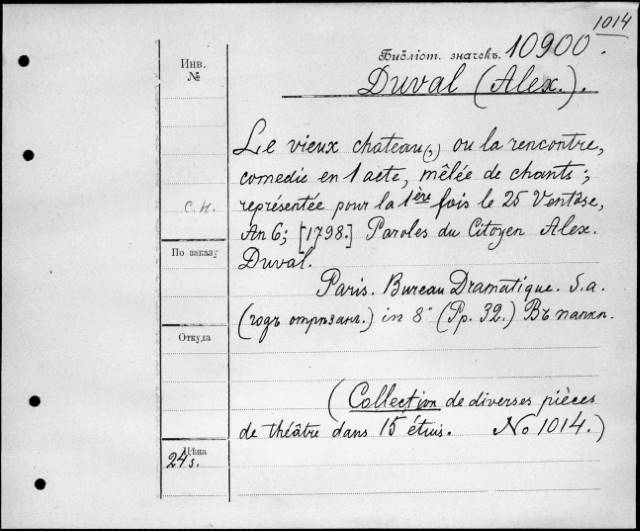 1014
Библіот. значекъ. 10900.
Инв.
№
Duval (Alex.).
Le vieux chateau(,) ou la rencontre,
comedie en 1 acte, mêlée de chants;
représentée pour la 1ère fois le 25 Ventôse,
С. Н.
An 6; [1798.] Paroles du Citoyen Alex.
По заказу
Duval.
Paris. Bureau Dramatique. S. a.
(годъ отрѣзанъ.) in 8° (Pp. 32.) Въ папкѣ.
Откуда
(Collection de diverses pièces
de théâtre dans 15 étuis. No 1014.)
Цѣна
24 s.